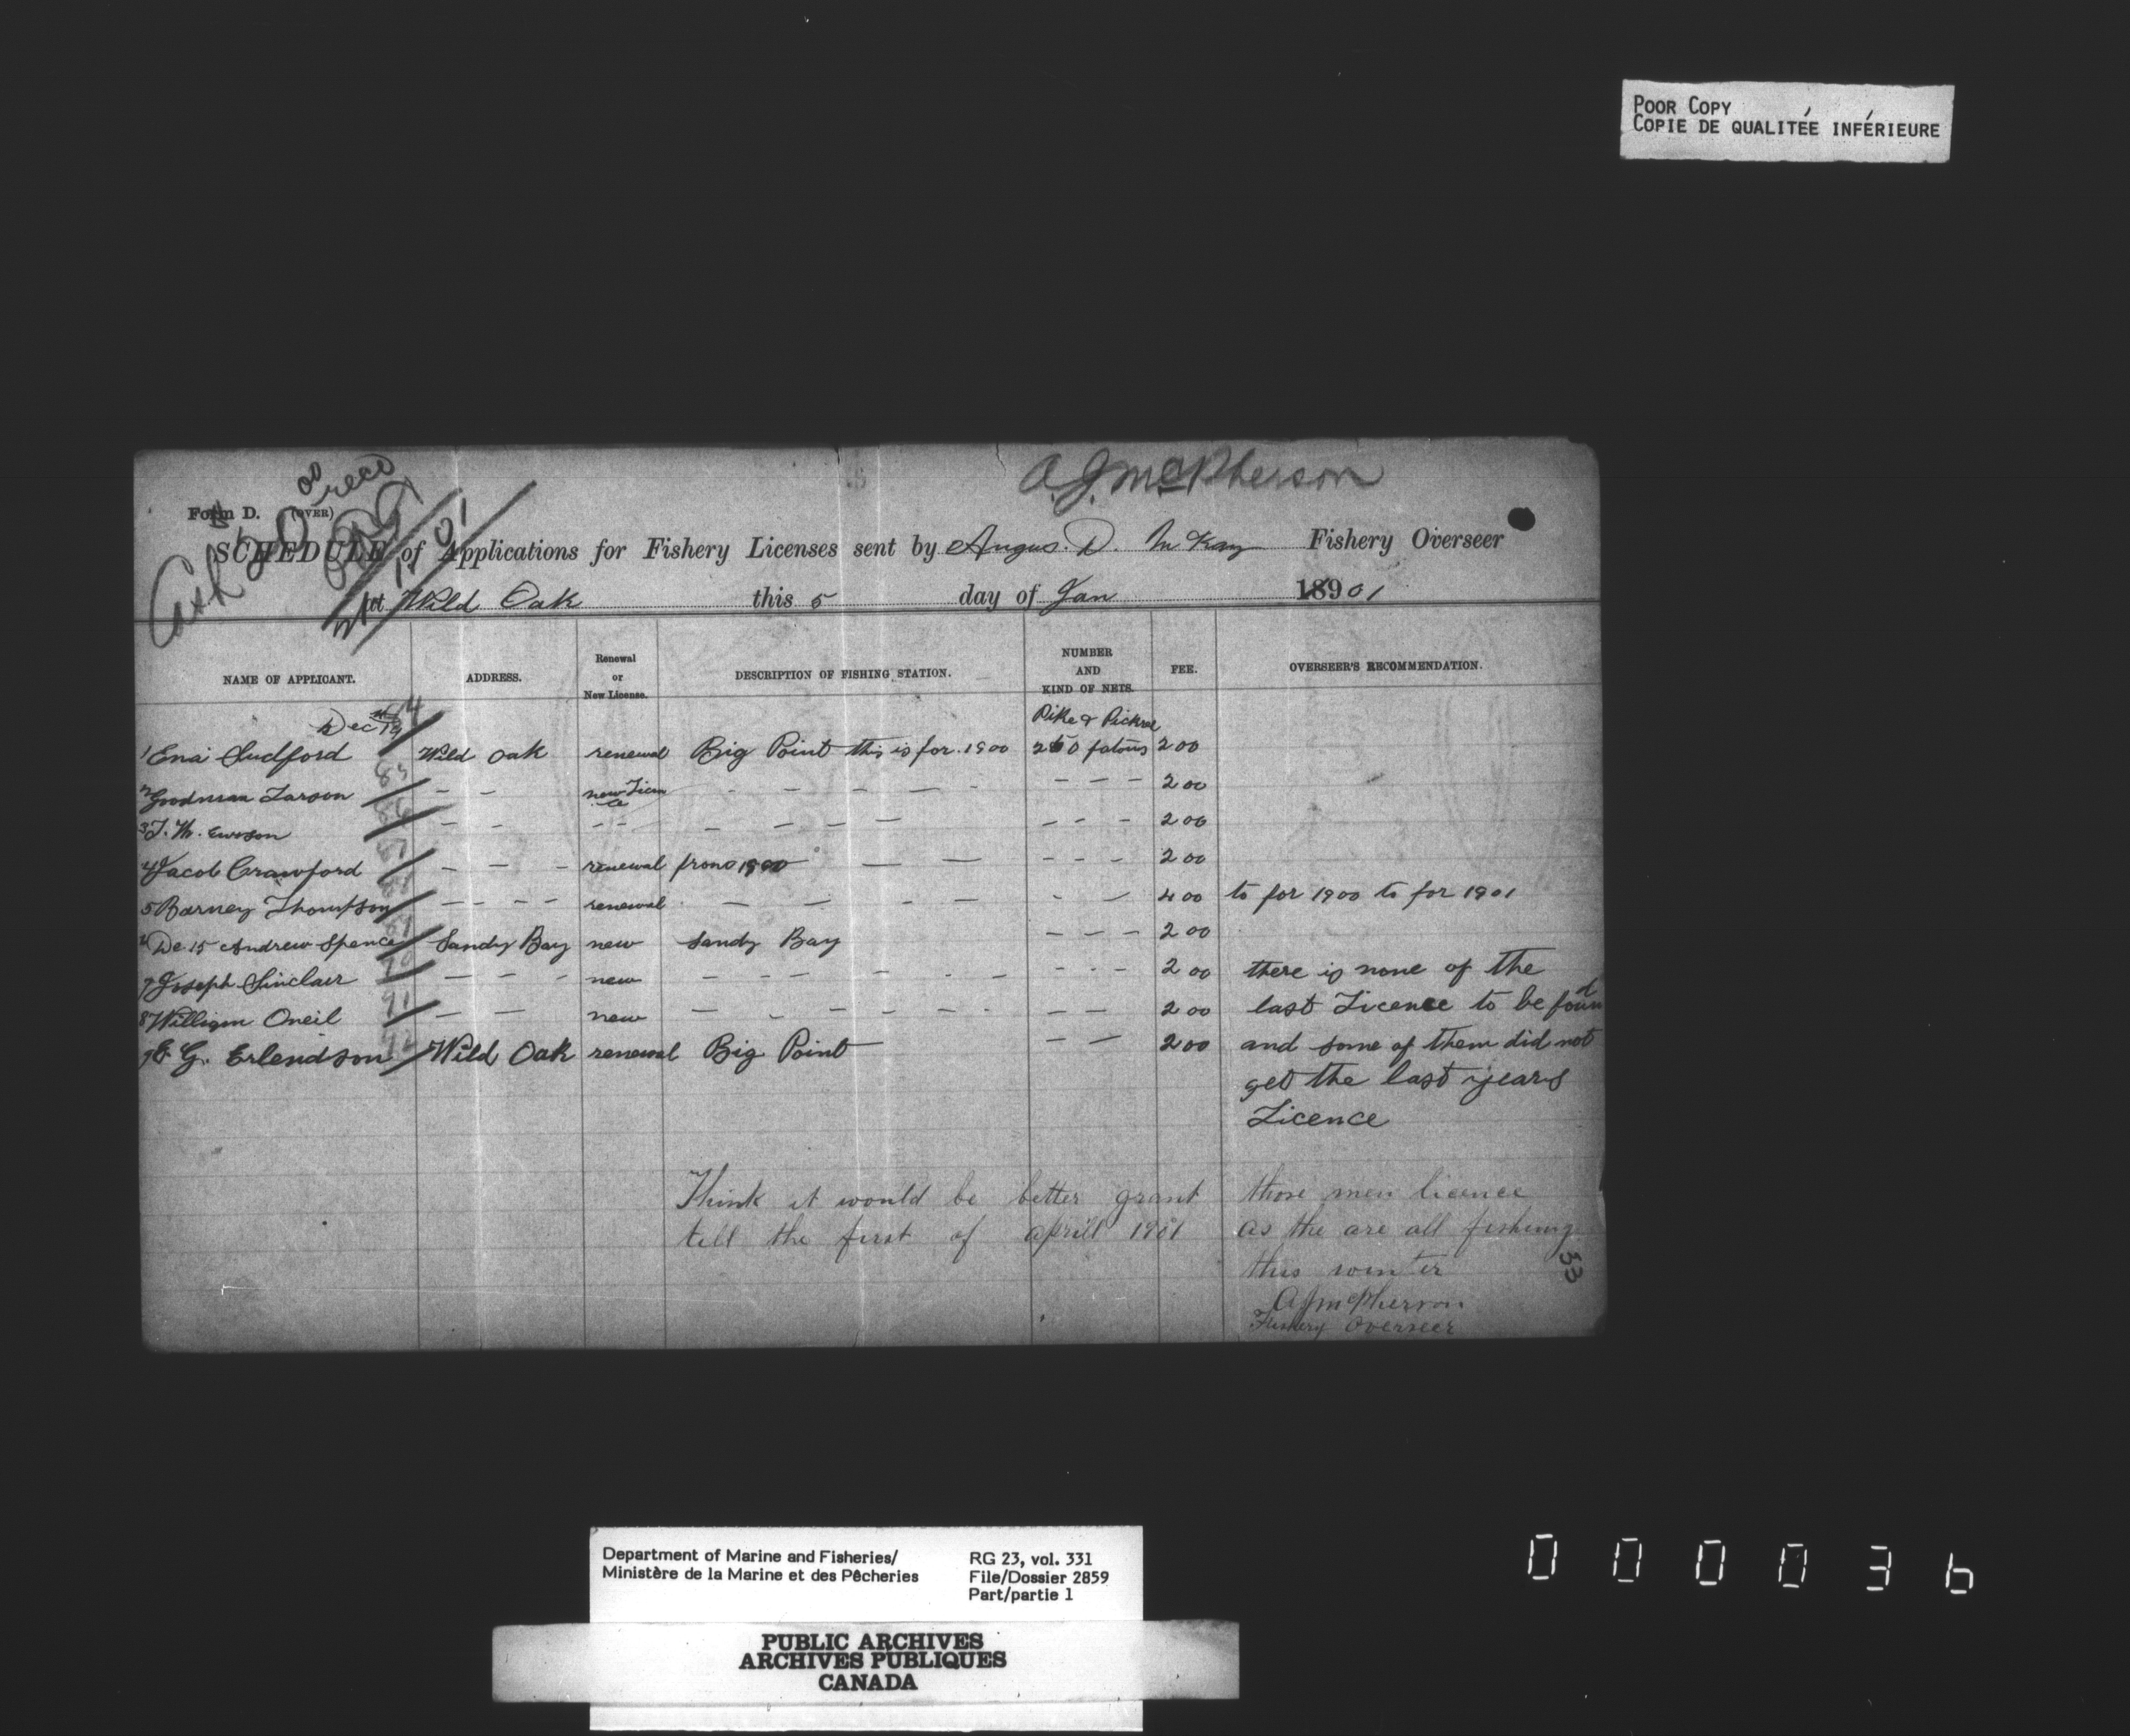 POOR COPY
COPIE DE QUALITÉE INFÉRIEURE
A.J. McPherson
Form D. (OVER)
Cash 20 00 recd
SCHEDULE of Applications for Fishery Licenses sent by Angus. D. McKay Fishery Overseer
At Wild Oak this 5 day of Jan 1890 01
NAME OF APPLICANT. ADDRESS. Renewal or New License. DESCRIPTION OF FISHING STATION. NUMBER AND KIND OF NETS. FEE. OVERSEER'S RECOMMENDATION.
Dec 84 Pike & Pickrel
1 Enai Sudford Wild Oak renewal Big Point this is for 1900 250 fatoms 2 00
2 Goodman Larson 85 – – new Licence – – – – – – – – 2 00
3 J. Th. Ewson 86 – – – – – – – – – – – 2 00
4 Jacob Crawford 87 – – – renewal from 1900 – – – – – 2 00
5 Barney Thompson – – – – renewal – – – – – – 4 00 to for 1900 to for 1901
De 15 Andrew Spence 89 Sandy Bay new Sandy Bay – – – 2 00
7 Joseph Sinclair 90 – – – new – – – – – – – – – – 2 00 there is none of the
8 William Oneil 91 – – new – – – – – – – – – 2 00 last Licence to be found
9 E. G. Erlendson 92 Wild Oak renewal Big Point – – – 2 00 and some of them did not
get the last years
Licence
Think it would be better grant those men licence
till the first of aprill 1901 as the are all fishing
this winter
33
A J McPherson
Fishery Overseer
Department of Marine and Fisheries/ RG 23, vol. 331
Ministère de la Marine et des Pêcheries File/Dossier 2859
Part/partie 1
PUBLIC ARCHIVES
ARCHIVES PUBLIQUES
CANADA
000036